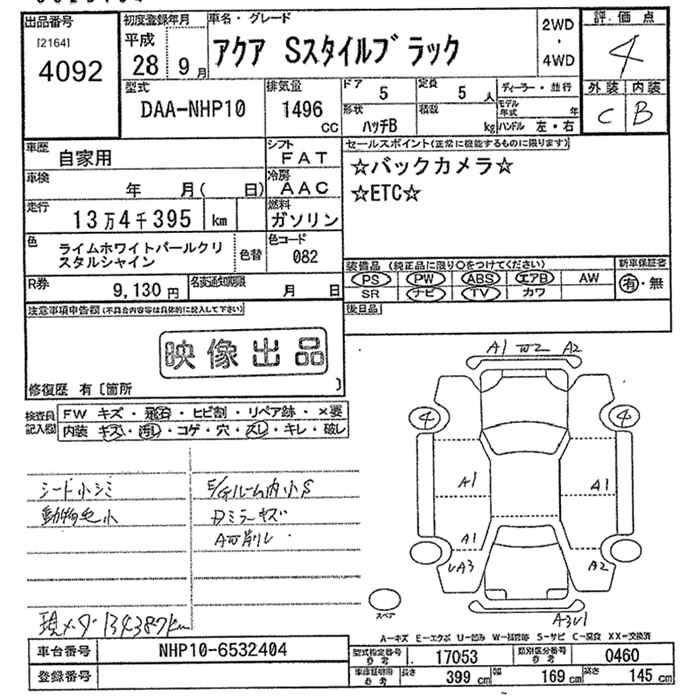 出品番号
[2164]
4092
初度登録年月
平成
28年9月
車名・グレード
アクア Sスタイルブラック
2WD
・
4WD
評価点
4
外装 内装
C B
型式
DAA-NHP10
排気量
1496
CC
ドア 5
定員 5人
形状
ハッチB
積載
kg
ディーラー・並行
モデル年式 年
ハンドル 左・右
車歴
自家用
シフト
FAT
車検
年 月( 日)
冷房
AAC
走行
13万4千395 km
燃料
ガソリン
色
ライムホワイトパールクリ
スタルシャイン
色替
色コード
082
R券
9,130円
名変通知期限
月 日
セールスポイント(正常に機能するものに限ります)
☆バックカメラ☆
☆ETC☆
装備品 (純正品に限り○をつけてください)
PS PW ABS エアB AW
SR ナビ TV カワ
新車保証書
有・無
後日品
注意事項申告欄(不具合内容等は具体的に記入して下さい)
映像出品
修復歴 有〔箇所 〕
検査員
記入欄
FW キズ・飛石・ヒビ割・リペア跡・×要
内装 キズ・汚れ・コゲ・穴・スレ・キレ・破レ
シート小シミ
動物毛小
E/Gルーム内小S
Dミラーキズ
現メーター134387km
A1 W2 A2
4 4
A1 A1
A1
UA3 A2
A3U1
スペア
A-キズ E-エクボ U-凹み W-補修跡 S-サビ C-腐食 XX-交換済
車台番号
NHP10-6532404
登録番号
型式指定番号
参考
17053
類別区分番号
参考
0460
車庫証明用
参考
長さ 399 cm 幅 169 cm 高さ 145 cm